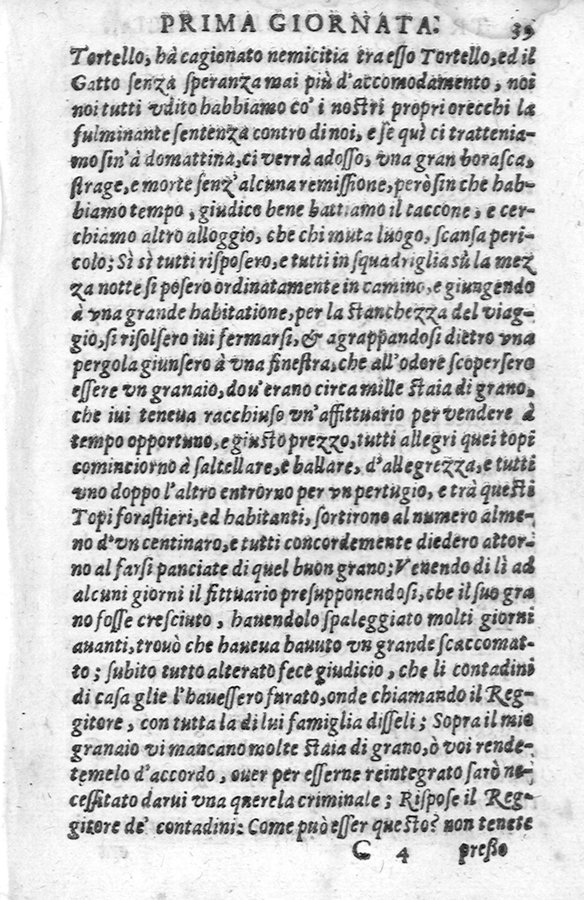 PRIMA GIORNATA. 39
Tortello, hà cagionato nemicitia tra esso Tortello, ed il
Gatto senza speranza mai più d'accomodamento, noi
noi tutti vdito habbiamo co' i nostri propri orecchi la
fulminante sentenza contro di noi, e se quì ci trattenia-
mo sin'à domattina, ci verrà adosso, vna gran borasca,
strage, e morte senz'alcuna remissione, però sin che hab-
biamo tempo, giudico bene battiamo il taccone, e cer-
chiamo altro alloggio, che chi muta luogo, scansa peri-
colo; Sì sì tutti risposero, e tutti in squadriglia sù la mez
za notte si posero ordinatamente in camino, e giungendo
à vna grande habitatione, per la stanchezza del viag-
gio, si risolsero iui fermarsi, & agrappandosi dietro vna
pergola giunsero à vna finestra, che all'odore scopersero
essere vn granaio, dou'erano circa mille staia di grano,
che iui teneua racchiuso vn'affittuario per vendere à
tempo opportuno, e giusto prezzo, tutti allegri quei topi
cominciorno à saltellare, e ballare, d'allegrezza, e tutti
uno doppo l'altro entrorno per vn pertugio, e trà questi
Topi forastieri, ed habitanti, sortirono al numero alme-
no d'vn centinaro, e tutti concordemente diedero attor-
no al farsi panciate di quel buon grano; Venendo di lì ad
alcuni giorni il fittuario presupponendosi, che il suo gra
no fosse cresciuto, hauendolo spaleggiato molti giorni
auanti, trouò che haueua hauuto vn grande scaccomat-
to; subito tutto alterato fece giudicio, che li contadini
di casa glie l'hauessero furato, onde chiamando il Reg-
gitore, con tutta la di lui famiglia disseli; Sopra il mio
granaio vi mancano molte staia di grano, ò voi rende-
temelo d'accordo, ouer per esserne reintegrato sarò ne-
cessitato darui vna querela criminale; Rispose il Reg-
gitore de' contadini: Come può esser questo? non tenete
C 4 presso